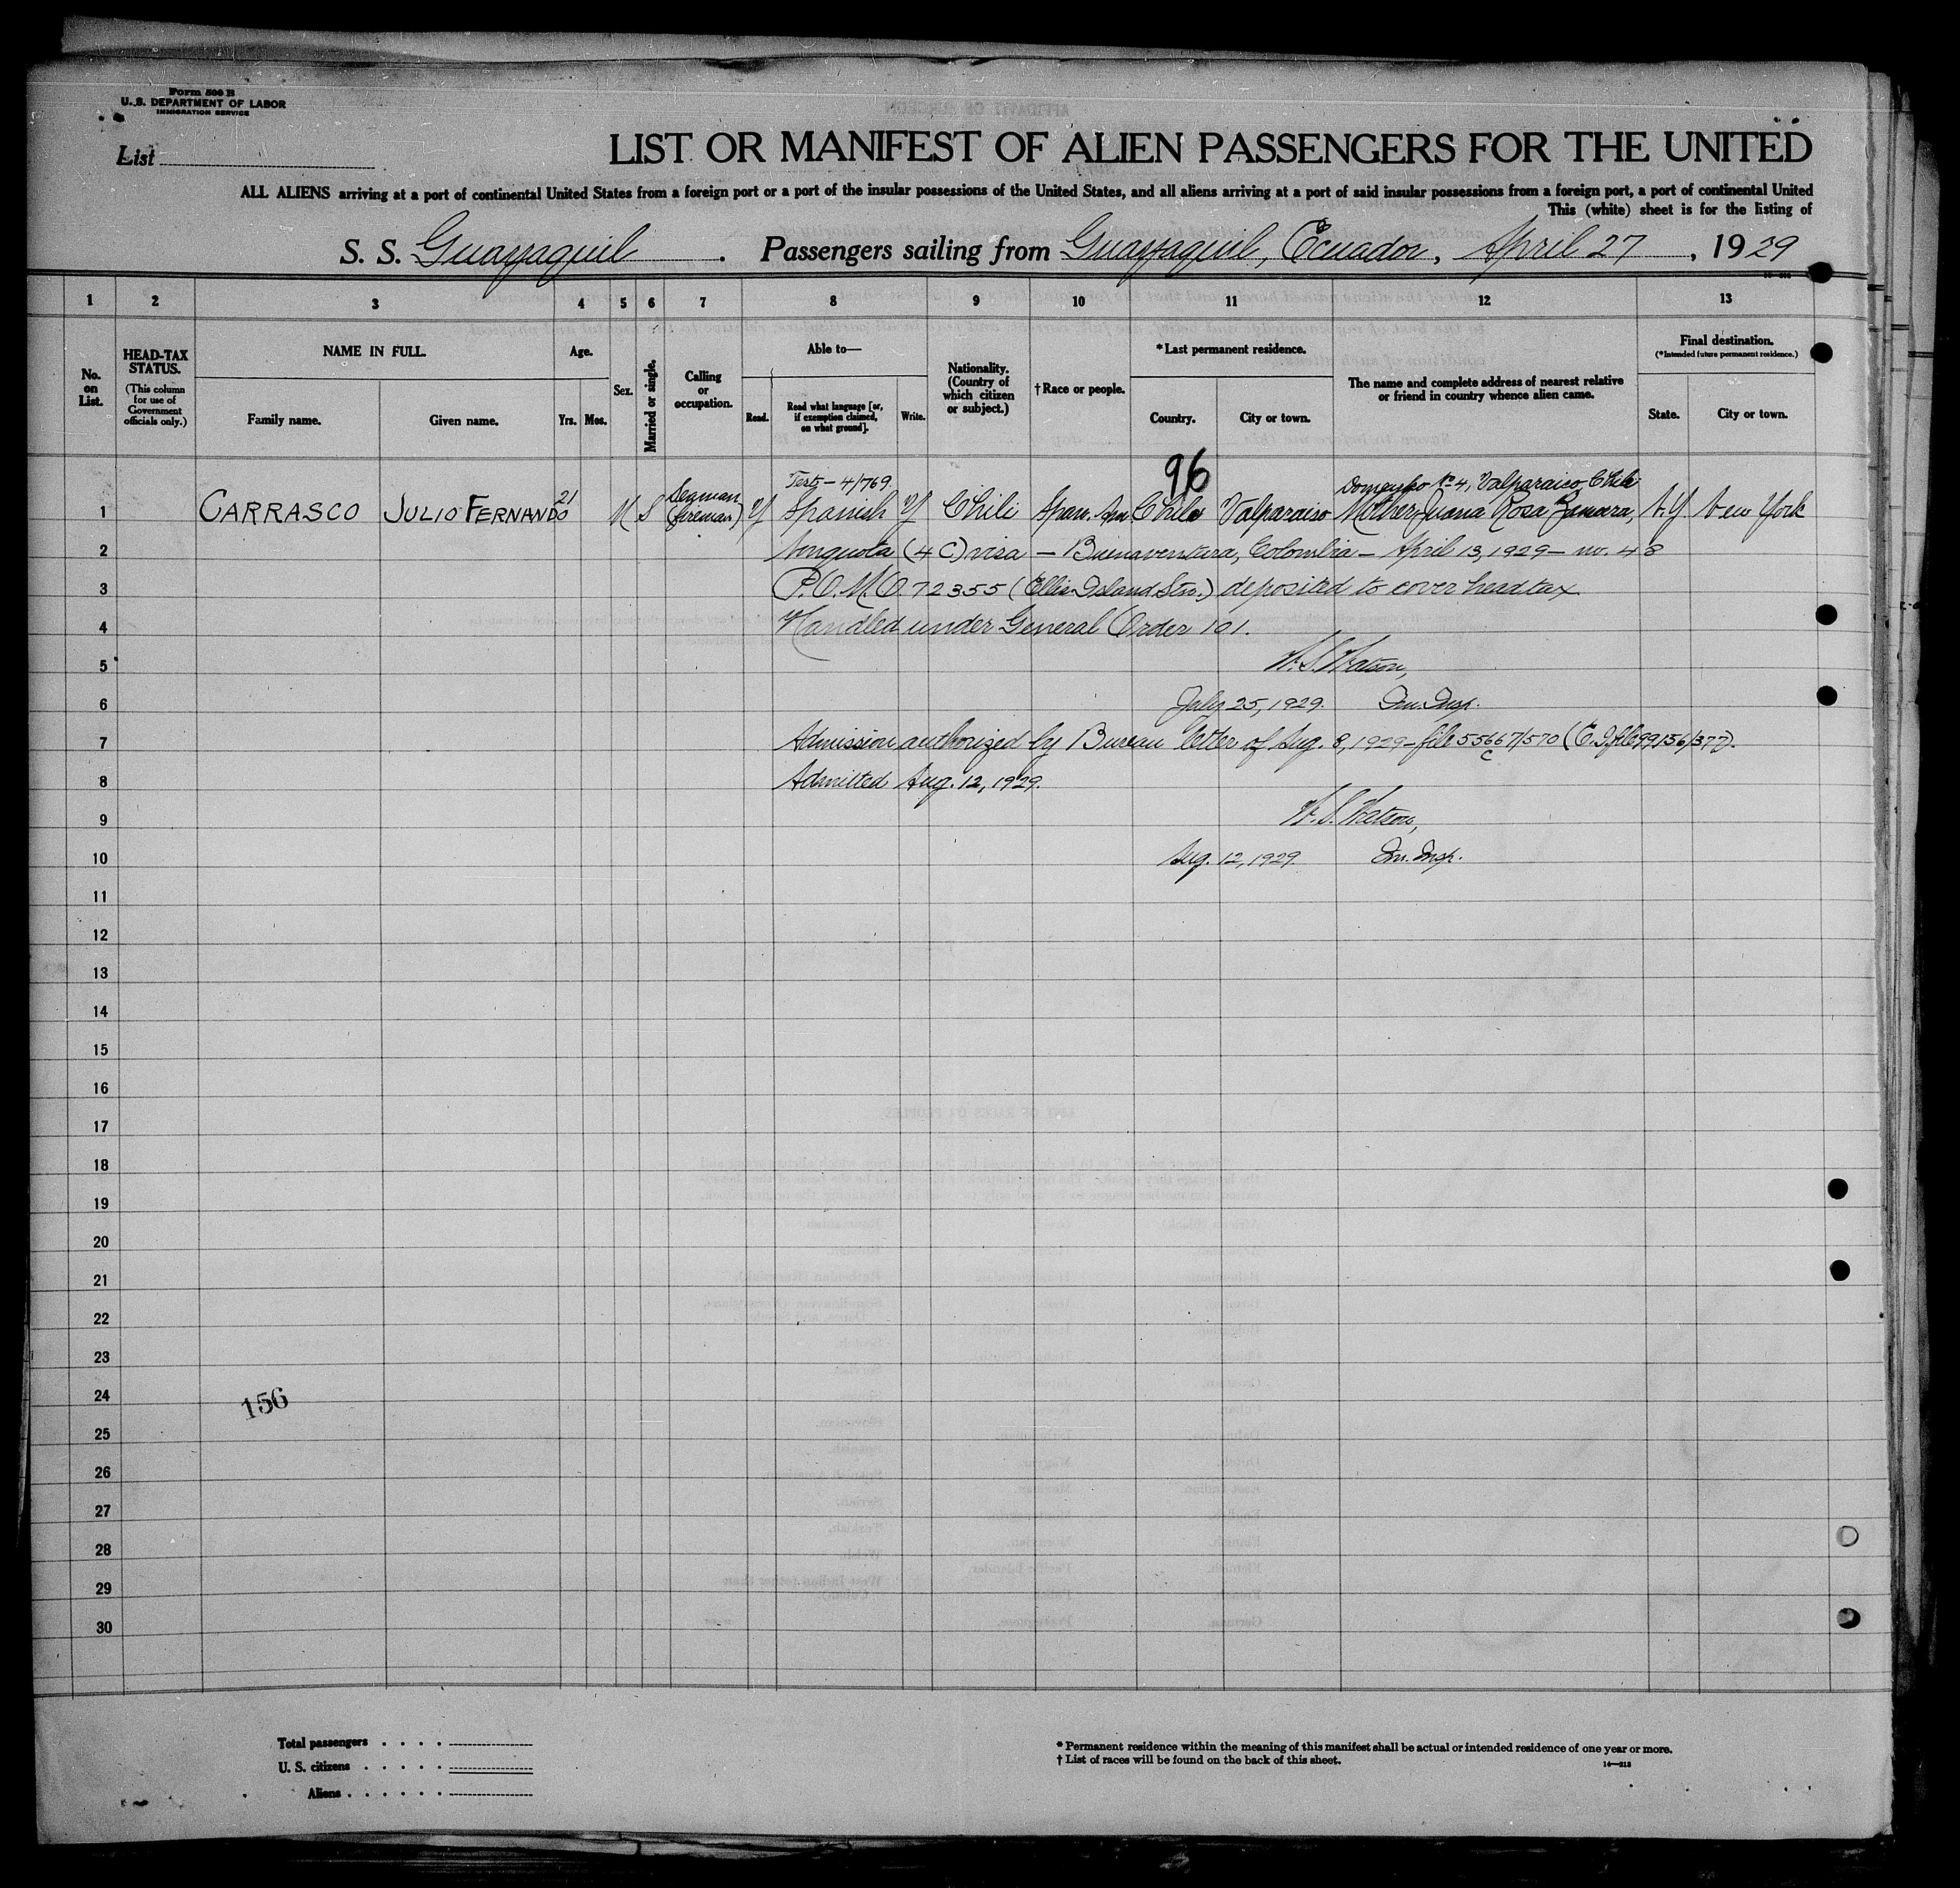 Form 500 B
U. S. DEPARTMENT OF LABOR
IMMIGRATION SERVICE
List
LIST OR MANIFEST OF ALIEN PASSENGERS FOR THE UNITED
ALL ALIENS arriving at a port of continental United States from a foreign port or a port of the insular possessions of the United States, and all aliens arriving at a port of said insular possessions from a foreign port, a port of continental United
This (white) sheet is for the listing of
S. S. Guayaquil . Passengers sailing from Guayaquil, Ecuador, April 27, 1929
1 2 3 4 5 6 7 8 9 10 11 12 13
No. on List.
HEAD-TAX STATUS.
(This column for use of Government officials only.)
NAME IN FULL.
Family name.
Given name.
Age.
Yrs. Mos.
Sex.
Married or single.
Calling or occupation.
Able to—
Read.
Read what language [or, if exemption claimed, on what ground].
Write.
Nationality. (Country of which citizen or subject.)
† Race or people.
*Last permanent residence.
Country.
City or town.
The name and complete address of nearest relative or friend in country whence alien came.
Final destination.
(*Intended future permanent residence.)
State.
City or town.
96
Test - 4/769 Valparaiso, Chile
1 CARRASCO JULIO FERNANDO 21 M S Seaman (fireman) Y Spanish Y Chili Span. Am Chile Valparaiso Mother, Juana Rosa N.Y. New York
2 Nonquota (4 C) visa — Buenaventura, Colombia — April 13, 1929 — no. 48
3 P.O.M.O. 72355 (Ellis Island Stn.) deposited to cover head tax
4 Handled under General Order 101.
5 W. S. Watson,
6 July 25, 1929. Im. Insp.
7 Admission authorized by Bureau letter of Aug. 8, 1929 — file 55667/570 (E.I. file 99156/377).
8 Admitted Aug. 12, 1929.
9 W. S. Watson,
10 Aug. 12, 1929. Im. Insp.
11
12
13
14
15
16
17
18
19
20
21
22
23
24
156
25
26
27
28
29
30
Total passengers . . . .
U. S. citizens . . . . .
Aliens . . . . . .
* Permanent residence within the meaning of this manifest shall be actual or intended residence of one year or more.
† List of races will be found on the back of this sheet.
14—218